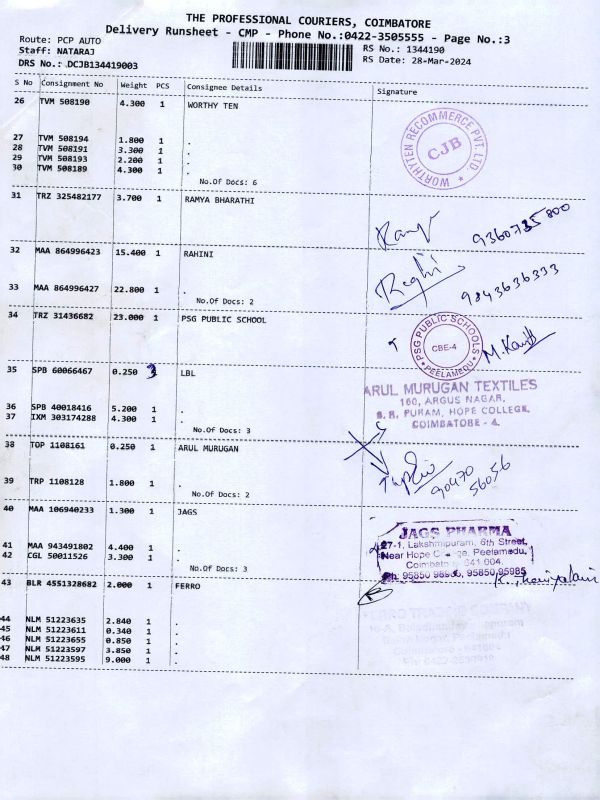 THE PROFESSIONAL COURIERS, COIMBATORE
Delivery Runsheet - CMP - Phone No.:0422-3505555 - Page No.:3
Route: PCP AUTO RS No.: 1344190
Staff: NATARAJ RS Date: 28-Mar-2024
DRS No.: DCJB134419003
S No Consignment No Weight PCS Consignee Details Signature
26 TVM 508190 4.300 1 WORTHY TEN
WORTHYTEN RECOMMERCE PVT. LTD.
CJB
27 TVM 508194 1.800 1 .
28 TVM 508191 3.300 1 .
29 TVM 508193 2.200 1 .
30 TVM 508189 4.300 1 .
No.Of Docs: 6
31 TRZ 325482177 3.700 1 RAMYA BHARATHI
32 MAA 864996423 15.400 1 RAHINI
9843636333
33 MAA 864996427 22.800 1 .
No.Of Docs: 2
34 TRZ 31436682 23.000 1 PSG PUBLIC SCHOOL
PSG PUBLIC SCHOOLS
CBE-4
PEELAMEDU
35 SPB 60066467 0.250 LBL
ARUL MURUGAN TEXTILES
160, ARGUS NAGAR,
S. R. PURAM, HOPE COLLEGE,
COIMBATORE - 4.
36 SPB 40018416 5.200 1 .
37 IXM 303174288 4.300 1 .
No.Of Docs: 3
38 TOP 1108161 0.250 1 ARUL MURUGAN
90470
56056
39 TRP 1108128 1.800 1 .
No.Of Docs: 2
40 MAA 106940233 1.300 1 JAGS
JAGS PHARMA
27-1, Lakshmipuram, 6th Street,
Near Hope Peelamedu,
641 004.
95850 95985
41 MAA 943491802 4.400 1 .
42 CGL 50011526 3.300 1 .
No.Of Docs: 3
43 BLR 4551328682 2.000 1 FERRO
44 NLM 51223635 2.840 1 .
45 NLM 51223611 0.340 1 .
46 NLM 51223655 0.850 1 .
47 NLM 51223597 3.850 1 .
48 NLM 51223595 9.000 1 .